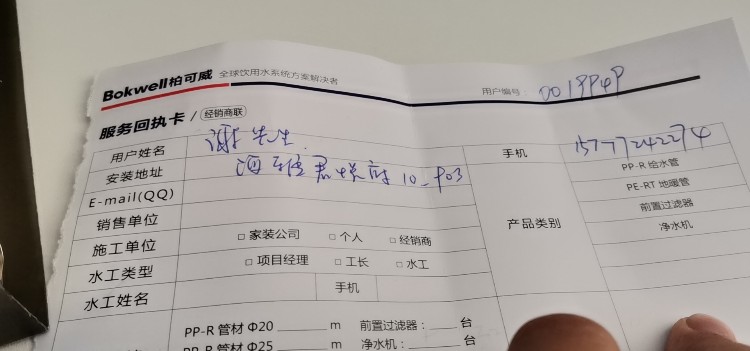 Bokwell柏可威 全球饮用水系统方案解决者
用户编号 0019949
服务回执卡 / 经销商联
用户姓名 谢先生 手机 15777242274
安装地址 10-903
E-mail(QQ)
销售单位
施工单位 □ 家装公司 □ 个人 □ 经销商
水工类型 □ 项目经理 □ 工长 □ 水工
水工姓名 手机
产品类别
PP-R 给水管
PE-RT 地暖管
前置过滤器
净水机
PP-R 管材 Φ20 m 前置过滤器: 台
PP-R 管材 Φ25 m 净水机: 台